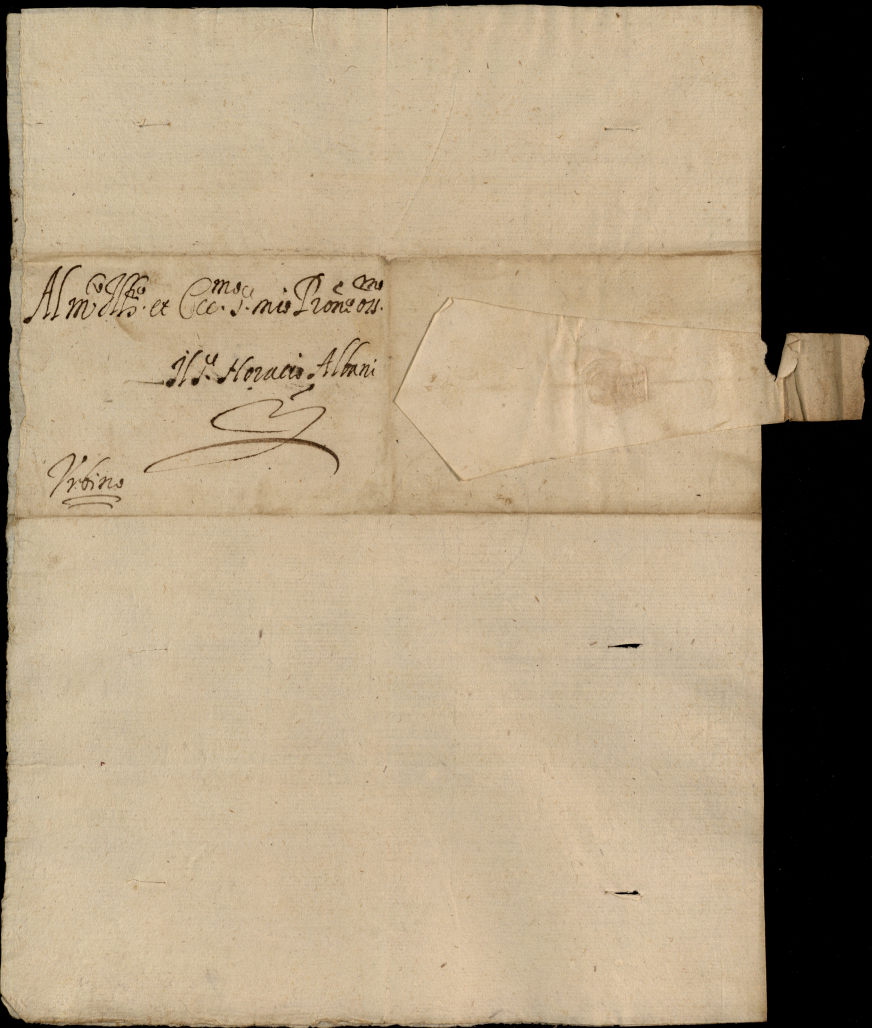 Al m.to Ill.re et Ecc.mo S.r mio P.rone oss.mo
Il S.r Horacio Albani
Vrbino